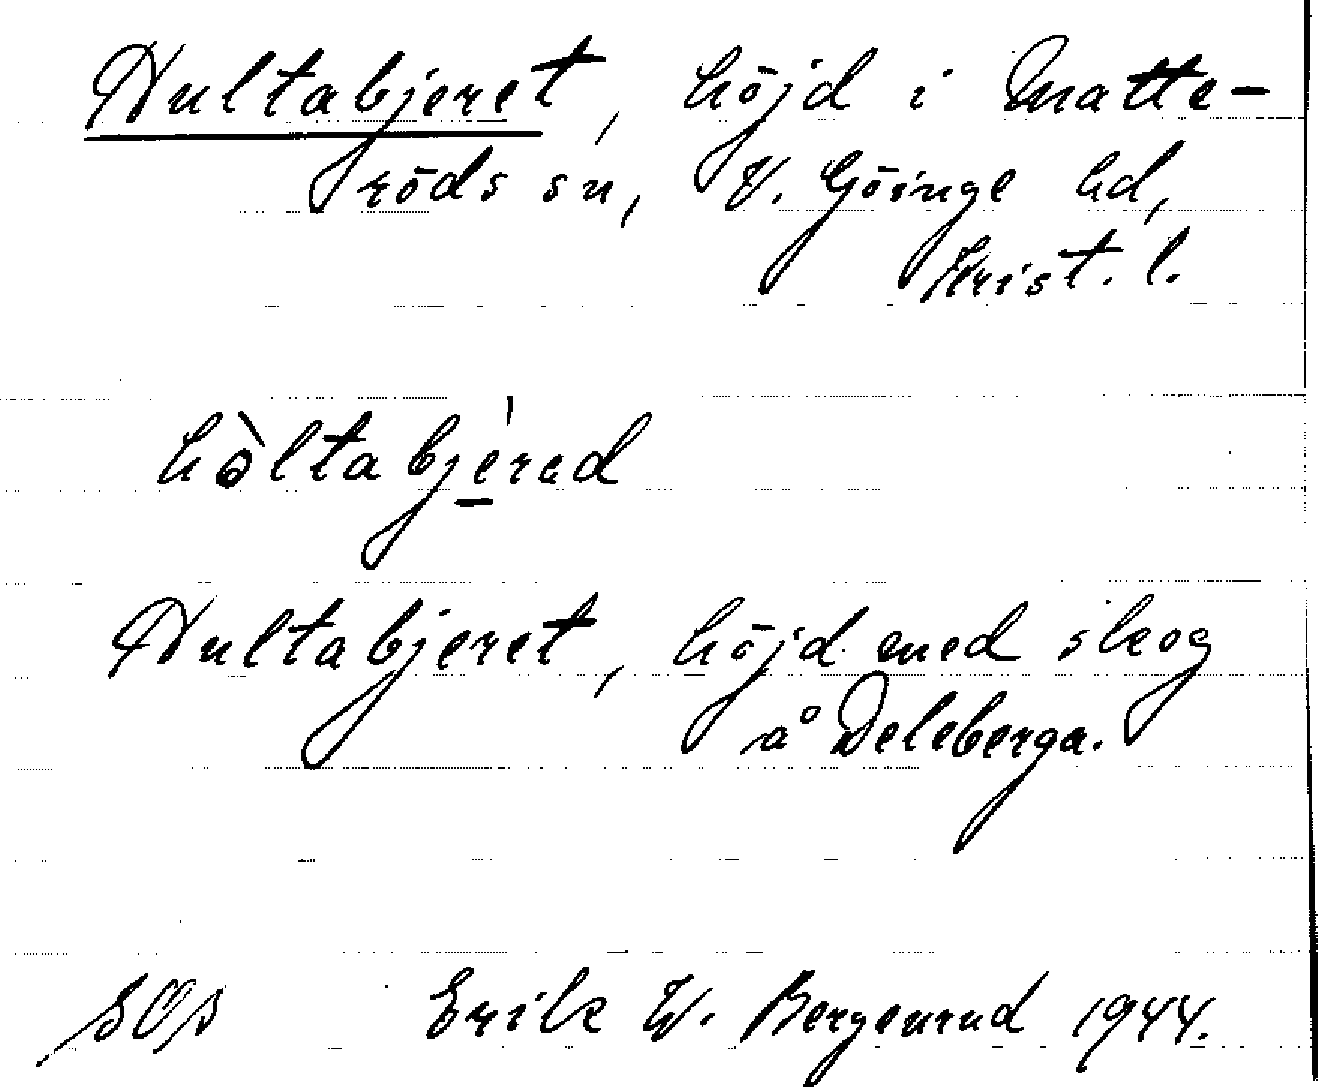 Hultabjeret, höjd i Matte-
röds sn, V. Göinge hd,
Krist. l.
hòltabjérad
Hultabjeret, höjd med skog
å Deleberga.
SOS Erik W. Bergenrud 1944.